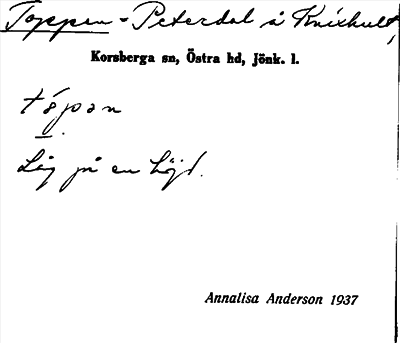 Toppen - Peterdal å Knixhult,
Korsberga sn, Östra hd, Jönk. l.
tópan
I.
Låg på en höjd.
Annalisa Anderson 1937